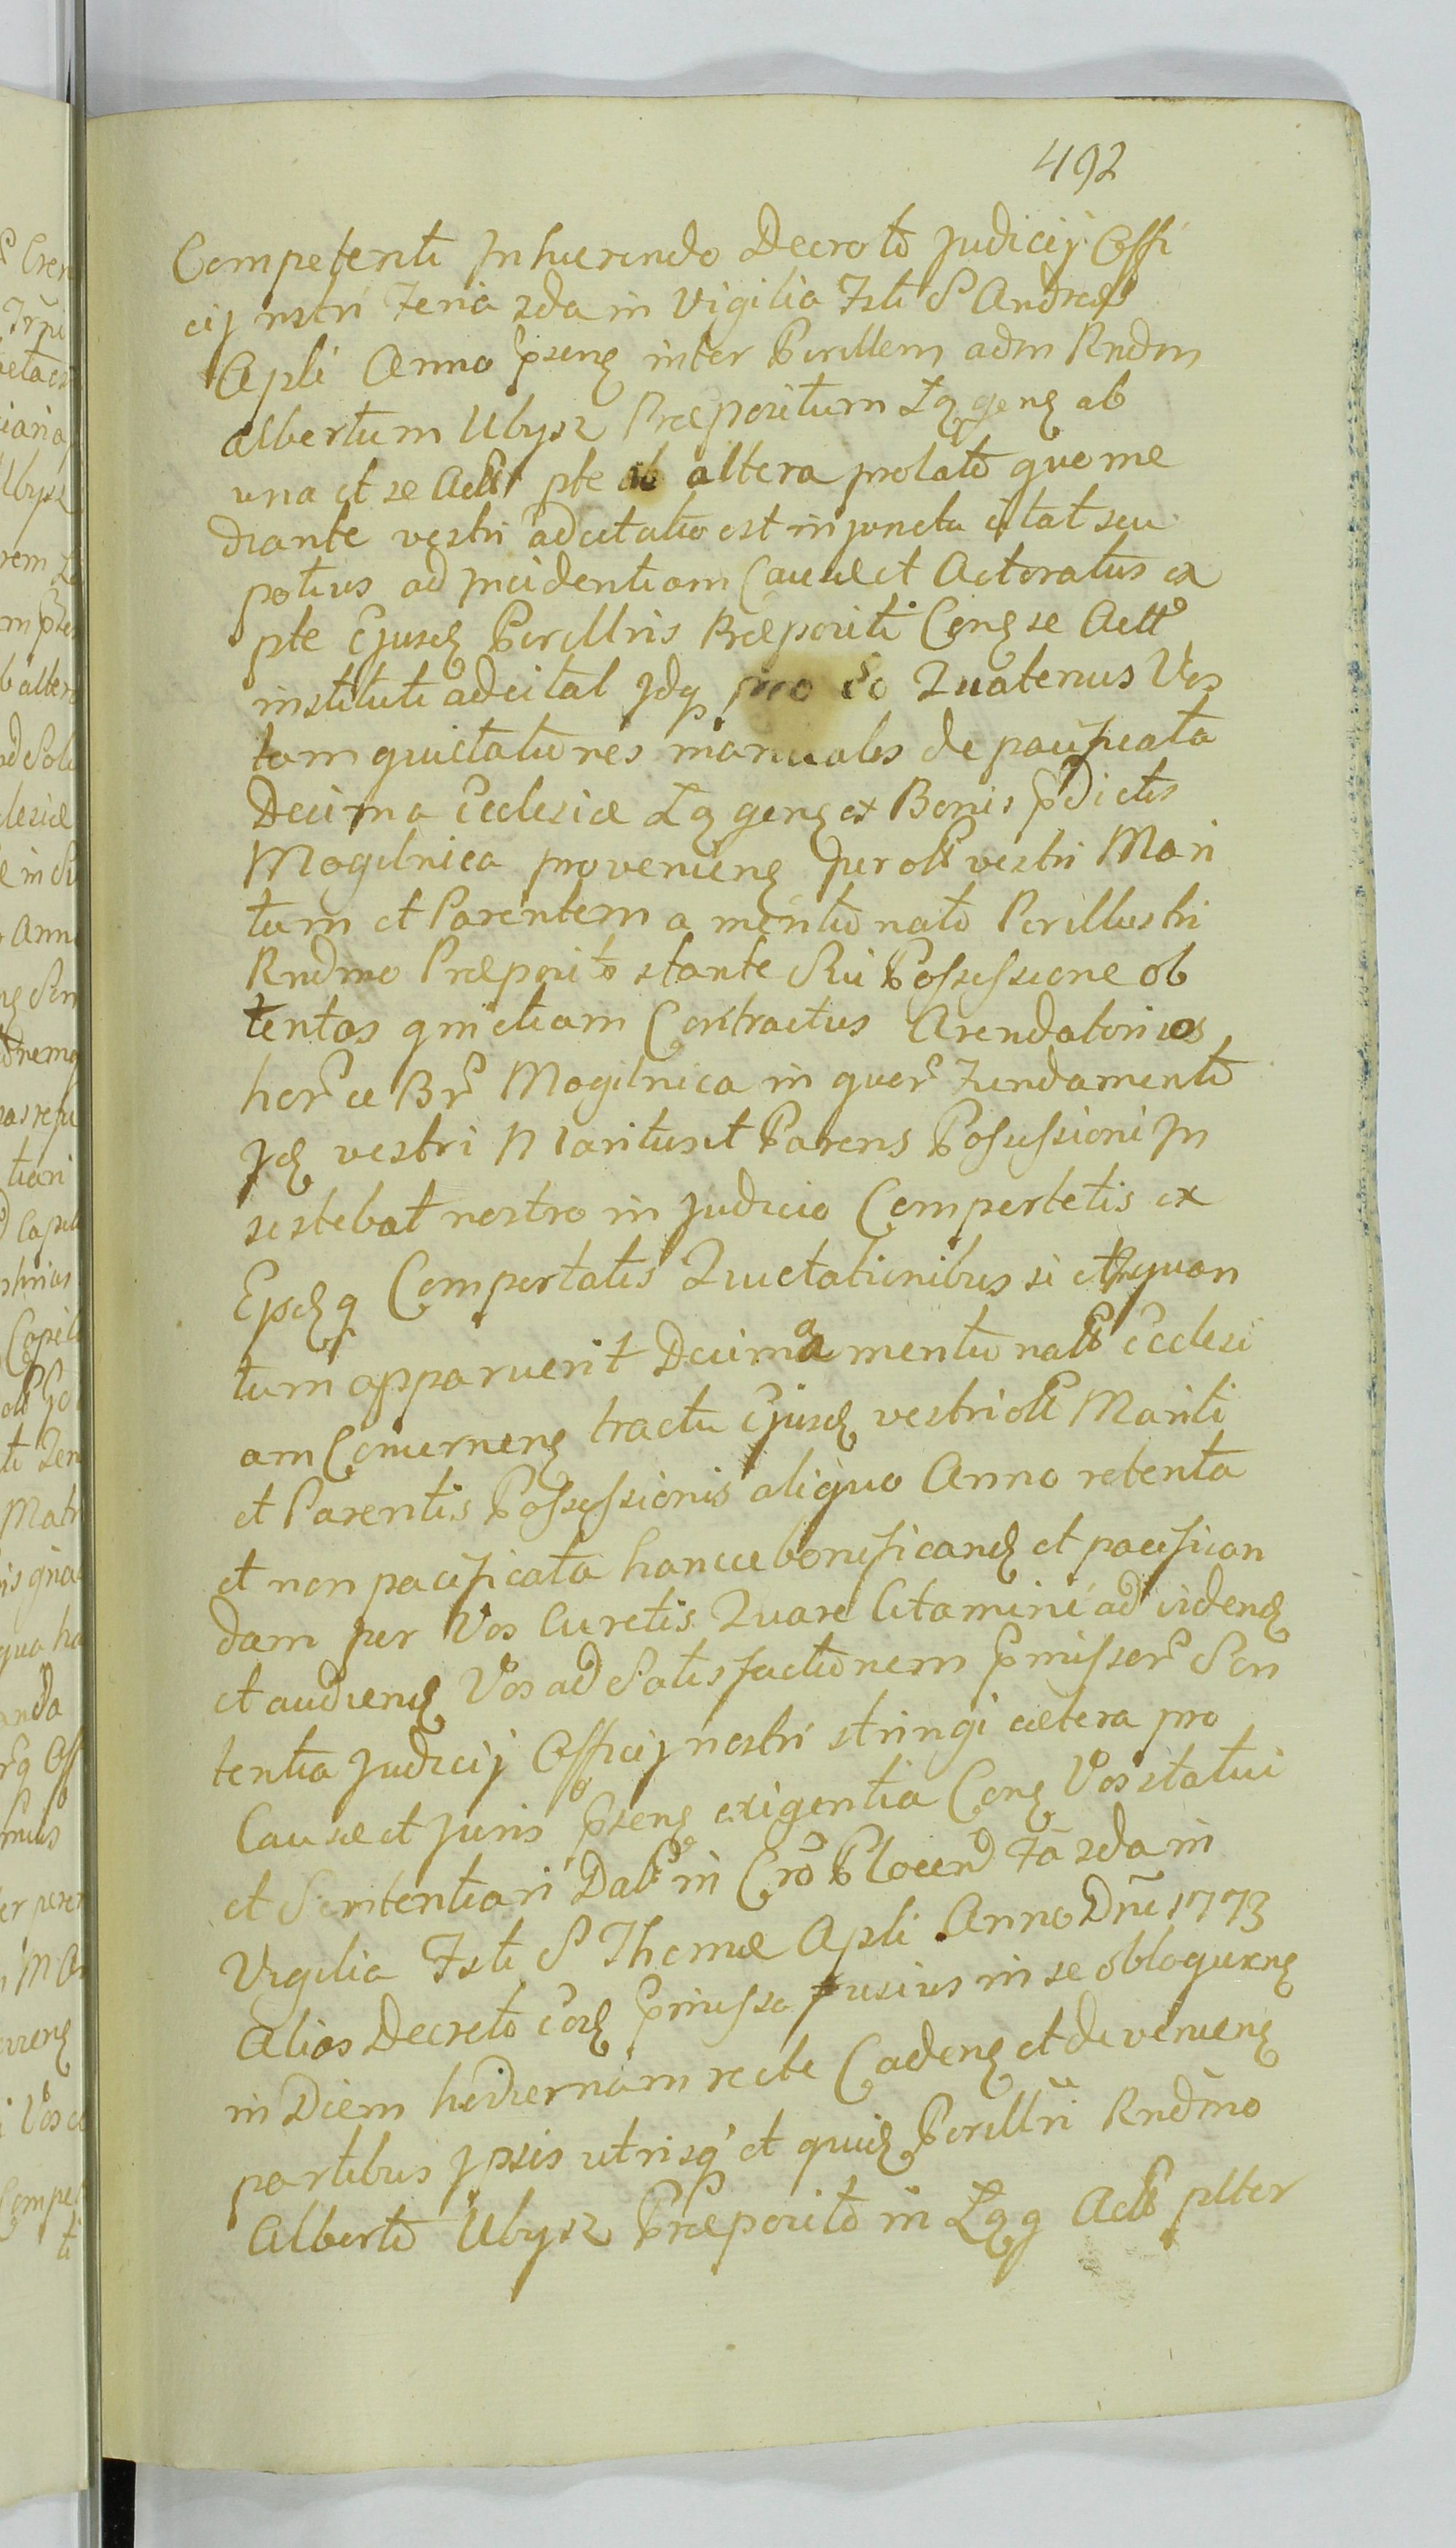 492
Competenti Inhaerendo Decreto Judicij Offi
cij nstri Feria 2da in Vigilia Fsti S Andreae
Apli Anno pseng inter Perillem adm Rndm
Albertum Ubysz Praepositum Lggeng ab
una et se Actt pte ab altera prolato quo me
diante vestri adcitatio est injuncta citat seu
potius ad incidentiam Causae et Actoratus ex
pte Ejusd Perillris Praepositi Cong se Actto
instituti adcitat Idq pro eo Quatenus Vos
tam quietationes manuales de pacificata
Decima Ecclesiae Lg geng ex Bonis pdictis
Mogilnica provenieng per olt vestri Mari
tum et Parentem a mentionato Perillustri
Rndmo Praeposito stante Sui Possessione ob
tentas qm etiam Contractus Arendatorios
horce Br Mogilnica in quor Fundamento
Id vestri Maritus et Parens Possessioni In
sistebat nostro in Judicio Comportetis ex
Epdq Comportatis Quietationibus si
tum apparuerit Decima mentionatt Ecclesi
am Concerneng tractu Ejusd vestri olt Mariti
et Parentis Possessionis aliquo Anno retenta
et non pacificata hancce bonificand et pacifican
dam per Vos Curetis Quare Citamini ad vidend
et audiend Vos ad Satisfactionem pmissor Sen
tentia Judicij Officij nostri stringi caetera pro
Causae et Juris pseng exigentia Cong Vos statui
et Sententiari Datt in Cro Plocen Fa 2da in
Vigilia Fsti S Thomae Apli Anno Dni 1773
Alias Decreto eod pmisso fusius in se obloqueng
in Diem hodiernam recte Cadeng et devenieng
partibus Ipsis utrisq et quid Perillri Rndmo
Alberto Ubysz Praeposito in Lgg Actt plter